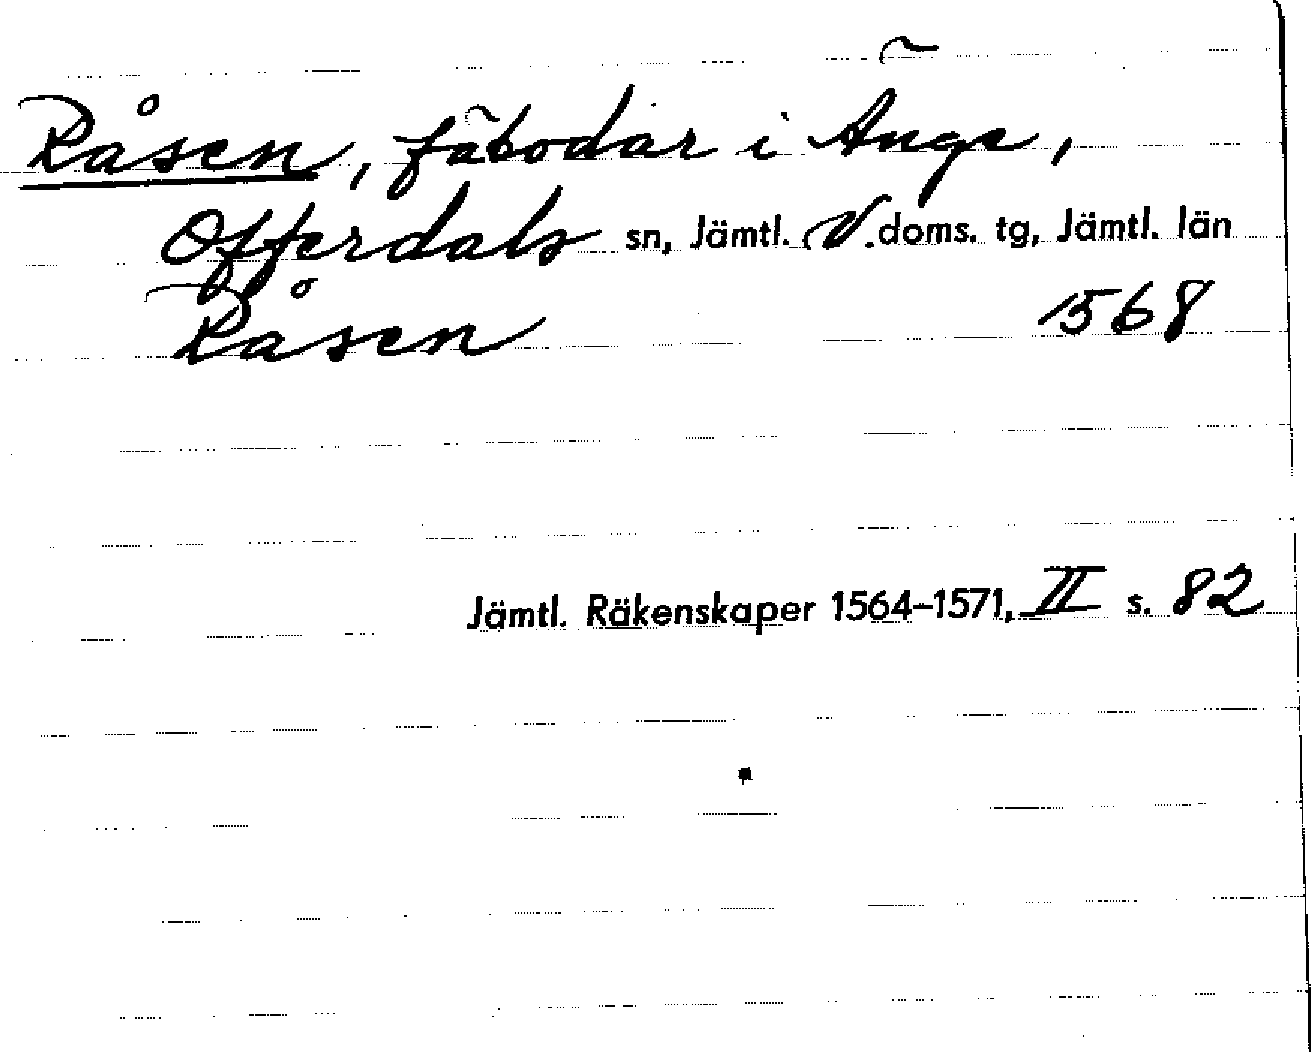 Råsen, fäbodar i Änge,
Offerdals sn, Jämtl. V. doms. tg, Jämtl. län
Råsen 1568
Jämtl. Räkenskaper 1564–1571, II s. 82